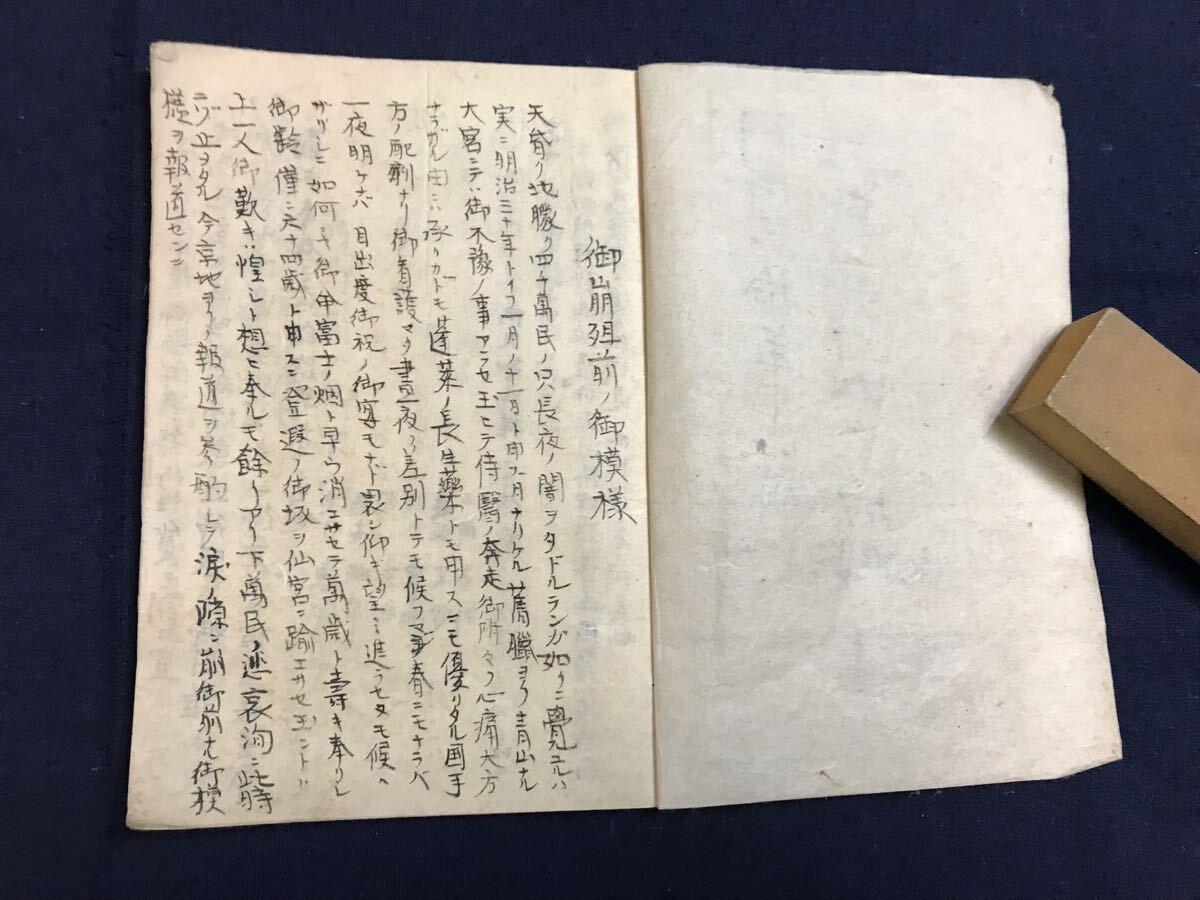 御崩殂前ノ御模様
天昏ク地朦ク四千萬民ノ只長夜ノ闇ヲタドルランガ如クニ覺ユルハ
実ニ明治三十年トイフ一月ノ十一日ト申ス月ナリケル舊臘ヨリ青山ナル
大宮ニテハ御不豫ノ事アラセ玉ヒテ侍醫ノ奔走御附々ノ心痛大方
ナラザル由ニ承リガトモ蓬莱ノ長生藥トモ申スニモ優リタル国手
方ノ配剤ナリ御看護マタ晝夜ノ差別トテモ候ハズ春ニモナラバ
一夜明ケナバ目出度御祝ノ御宴モナド畏シ仰ギ望ミ進ラセタモ候ヘ
ガガシニ如何ニヤ御命富士ノ烟ト早ウ消エサセテ萬歳ト壽キ奉リシ
御齡僅ニ六十四歳ト申スニ登遐ノ御坂ヲ仙宮ニ踰エサセ玉ントハ
上一人御歎キハ惶シト想ヒ奉ルモ餘リアリ下萬民ノ悲哀洵ニ此時
ニゾ止ヲタル今京地ヨリノ報道ヲ参酌シテ涙ノ隙ニ崩御前ナ御模
様ヲ報道セン